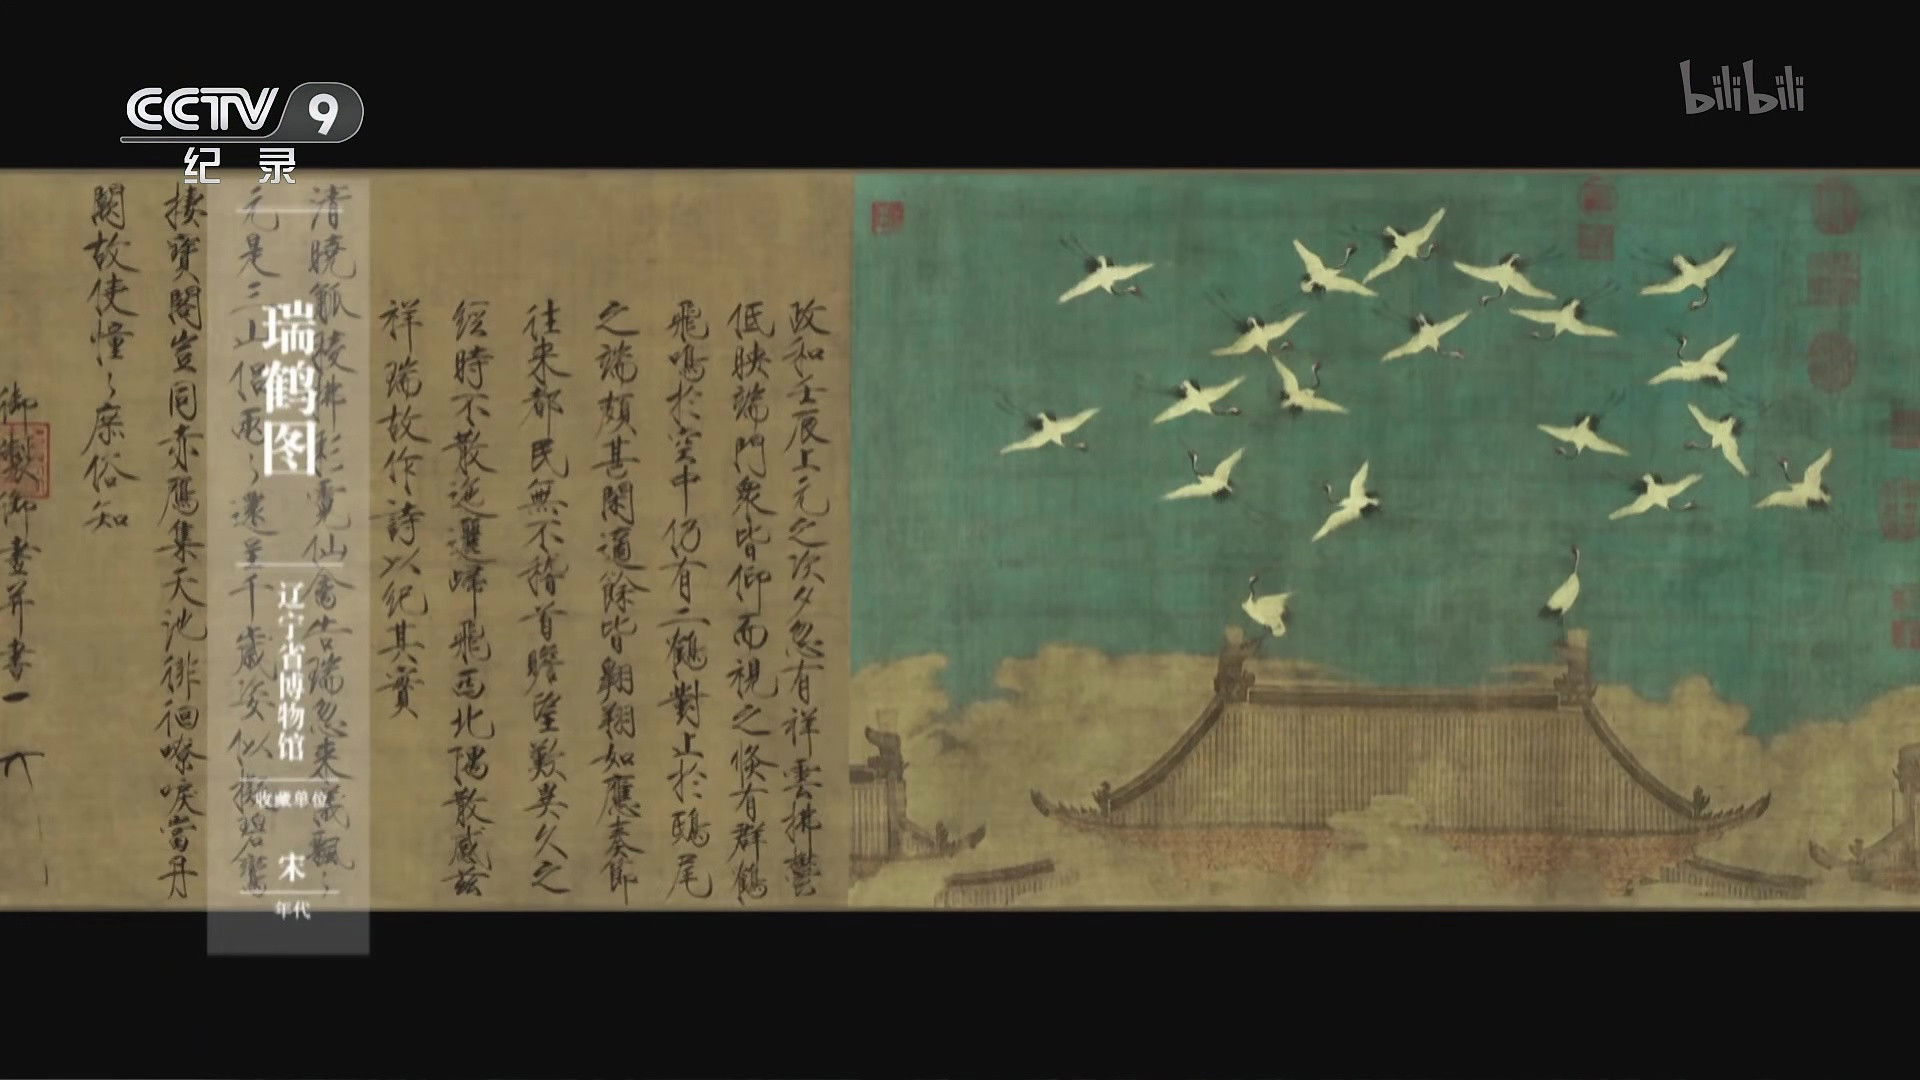 CCTV 9
纪录
bilibili
瑞鹤图
辽宁省博物馆
收藏单位
宋
年代
政和壬辰上元之次夕忽有祥雲拂鬱
低映端門衆皆仰而視之倏有群鶴
飛鳴於空中仍有二鶴對止於鴟尾
之端頗甚閑適餘皆翱翔如應奏節
往来都民無不稽首瞻望歎異久之
經時不散迤邐歸飛西北隅散感兹
祥瑞故作詩以紀其實
清曉觚稜拂彩霓仙禽告瑞忽来儀飄〻
元是三山侣兩〻還呈千歲姿似擬碧鸞
棲寶閣豈同赤鴈集天池徘徊嘹唳當丹
闕故使憧〻庶俗知
御製御畫并書